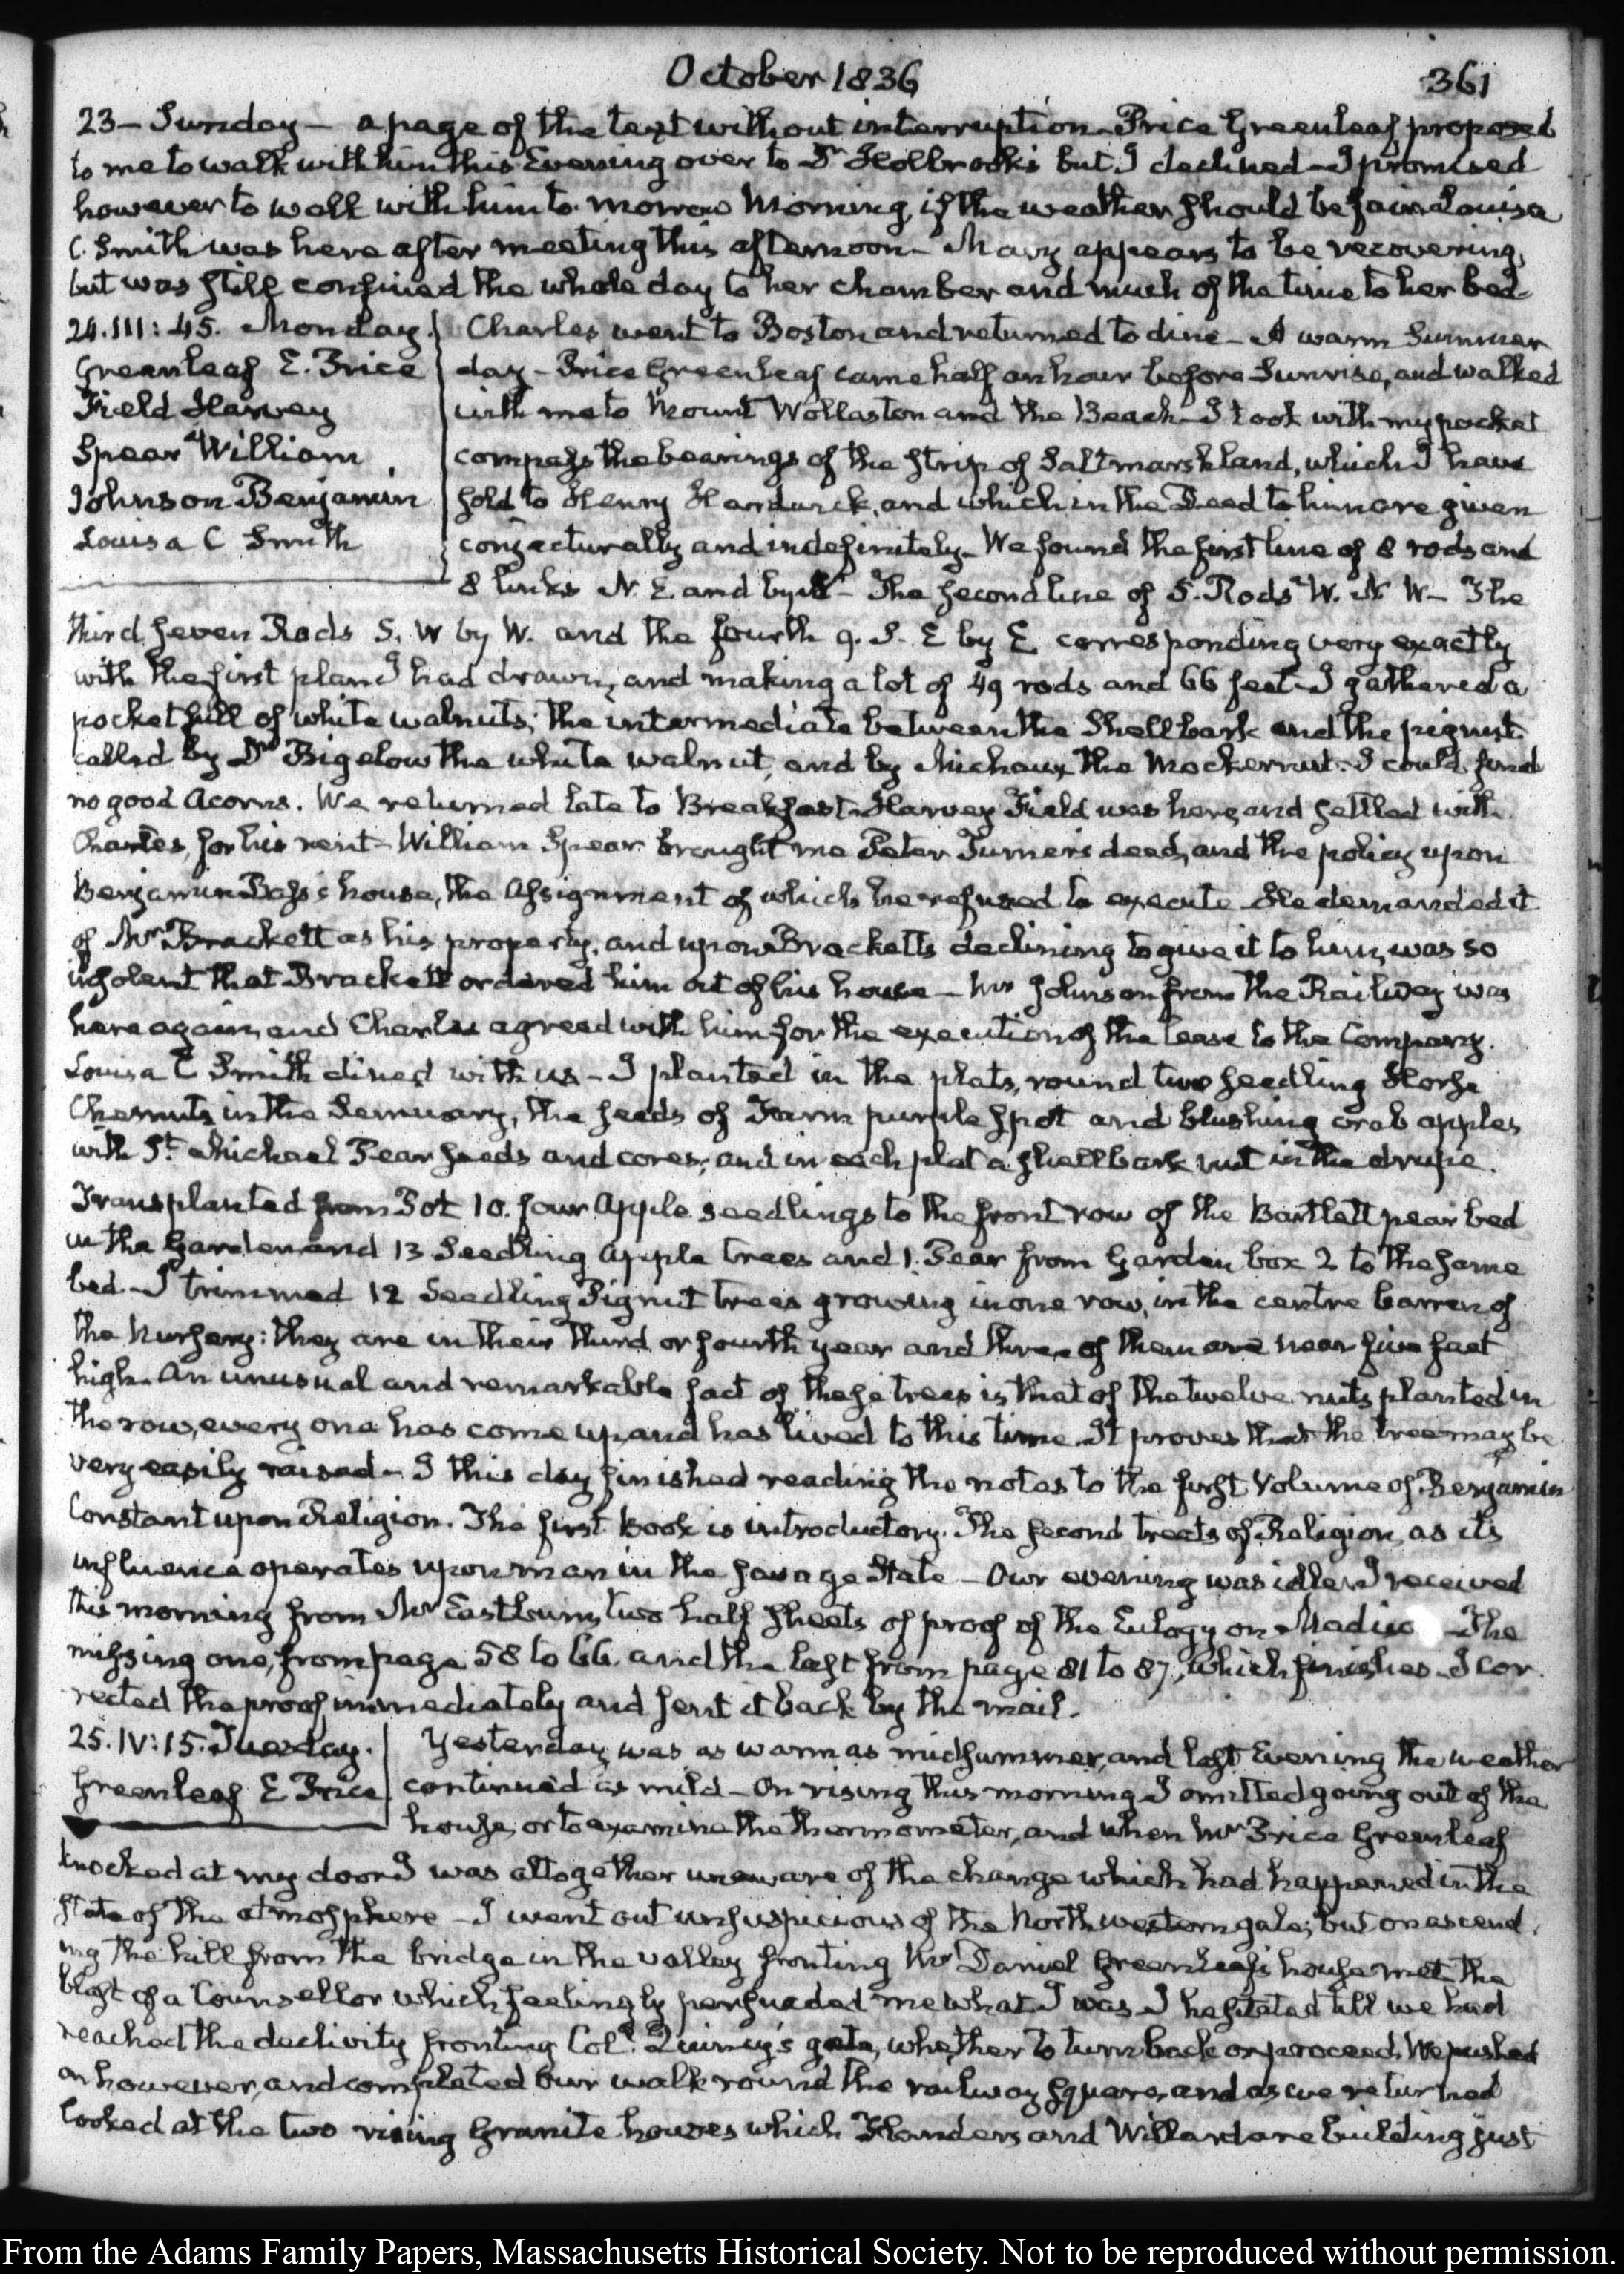 October 1836
361
23 – Sunday – a page of the text without interruption – Price Greenleaf proposed
to me to walk with him this Evening over to Dr Holbrook's but I declined – I promised
however to walk with him to-morrow Morning, if the weather should be fair. Louisa
C. Smith was here after meeting this afternoon – Mary appears to be recovering,
but was still confined the whole day to her chamber and much of the time to her bed –
24. III: 45. Monday.
Greenleaf E. Price
Field Harvey
Spear William
Johnson Benjamin
Louisa C Smith
Charles went to Boston and returned to dine – A warm Summer
day – Price Greenleaf came half an hour before Sunrise, and walked
with me to Mount Wollaston and the Beach – I took with my pocket
compass the bearings of the strip of Salt marsh land, which I have
sold to Henry Hardwick, and which in the Deed to him are given
conjecturally and indefinitely – We found the first line of 8 rods and
8 links N. E. and by – The second line of 5. Rods W. N. W – The
third seven Rods S. W by W. and the fourth 9. S. E by E corresponding very exactly
with the first plan I had drawn, and making a lot of 49 rods and 66 feet – I gathered a
pocket full of white walnuts; the intermediate between the Shellbark and the pignut
called by Dr Bigelow the white walnut, and by Michaux the Mockernut. I could find
no good Acorns. We returned late to Breakfast – Harvey Field was here, and settled with
Charles, for his rent – William Spear brought me Peter Turner's deed, and the policy upon
Benjamin Bass's house, the Assignment of which he refused to execute. He demanded it
of Mr Brackett as his property, and upon Bracketts declining to give it to him, was so
insolent that Brackett ordered him out of his house – Mr Johnson from the Railway was
here again, and Charles agreed with him for the execution of the lease to the Company.
Louisa C Smith dined with us – I planted in the plats, round two seedling Horse
Chesnuts in the Seminary, the seeds of Farm purple spot and blushing crab apples
with St Michael Pear seeds and cores; and in each plat a shellbark nut in the drupe.
Transplanted from Pot 10. four Apple seedlings to the front row of the Bartlett pear bed
in the Garden and 13 Seedling Apple trees and 1. Pear from Garden box 2 to the same
bed – I trimmed 12 Seedling Pignut trees growing in one row, in the centre barren of
the Nursery: they are in their third or fourth year and three of them are near five feet
high. An unusual and remarkable fact of these trees is that of the twelve nuts planted in
the row, every one has come up, and has lived to this time. It proves that the tree may be
very easily raised – I this day finished reading the notes to the first Volume of Benjamin
Constant upon Religion. The first Book is introductory. The second treats of Religion, as its
influence operates upon man in the savage State – Our evening was idle. I received
this morning from Mr Eastburn, two half sheets of proof of the Eulogy on Madiso – The
missing one, from page 58 to 66. and the last from page 81 to 87, which finishes. I cor
rected the proof immediately and sent it back by the mail.
25. IV: 15. Tuesday.
Greenleaf E Price
Yesterday was as warm as midsummer, and last Evening the weather
continued as mild – On rising this morning I omitted going out of the
house, or to examine the thermometer, and when Mr Price Greenleaf
knocked at my door I was altogether unaware of the change which had happened in the
state of the atmosphere – I went out unsuspicious of the North western gale; but on ascend
ing the hill from the bridge in the valley fronting Mr Daniel Greenleaf's house met the
blast of a Counsellor which feelingly persuaded me what I was. I hesitated till we had
reached the declivity fronting Col. Quincy's gate, whether to turn back or proceed. We pushed
on however, and completed our walk round the railway square, and as we returned
looked at the two rising Granite houses which Flanders and Willard are building just
From the Adams Family Papers, Massachusetts Historical Society. Not to be reproduced without permission.